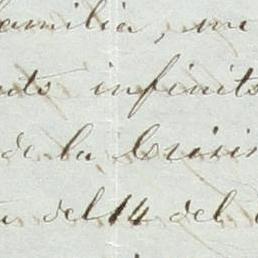 familia, me
nts infinits
de la Crisis
del 14 del